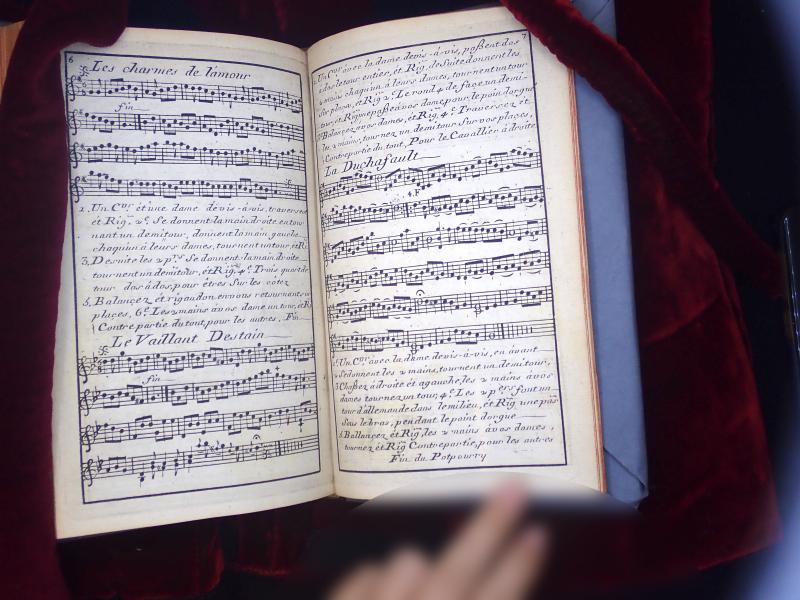 6
Les charmes de l'amour
fin
1. Un Cer. et une dame devis-àvis, traverse
et Rig. 2e. Se donnent la main droite en tour
nant un demi tour, donnent la main gauche
chaqu'un à leurs dames, tournent un tour, et R
3. De suite les 2 prs. Se donnent la main droite
tournent un demi tour, et Rig. 4e. Trois quart de
tour dos à dos, pour être s Sur les cotez
5. Balancez et rigaudon, en vous retournant
places, 6e. Les 2 mains à vos dame un tour, et R
Contrepartie du tout, pour les autres. Fin
Le Vaillant Destain
fin
7
Un Cer. avec la dame devis-à-vis, passent dos
à dos le tour entier, et Rig. de Suite donnent les
2 mains chaqu'un à leurs dames, tournent un tour
Sur place, et Rig 2e. Le rond 4 de façe un demi-
tour, et Rig
Balancez avos dames, et Rig. 4e. Traversez et
les 2 mains, tournez un demi tour Sur vos places,
Contrepartie du tout, Pour le Cavallier à droite
La Duchafault
4. F
1. Un Cer. avec la dame devis-à-vis, en avant
2 Se donnent les 2 mains, tournent un demi tour,
3 Chassez à droite et a gauche, les 2 mains àvos
dames tournez un tour, 4e. Les 2 pers font un
tour d'allemande dans le milieu, et Rig une pas
Sous le bras, pendant le point dorgue
Ballancez et Rig, les 2 mains àvos dames,
tournez et Rig Contrepartie, pour les autres
Fin du Potpourry